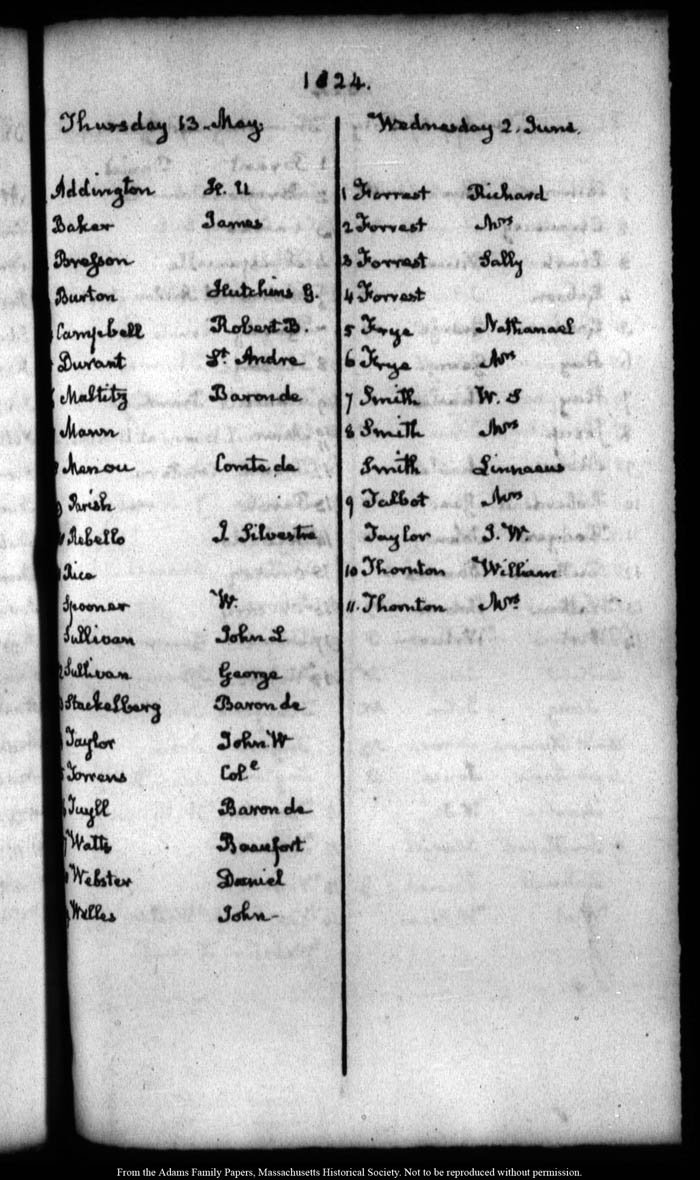 1824.
Thursday 13. May.
Addington H. U
Baker James
Bresson
Burton Hutchins G.
Campbell Robert B.
Durant St. Andre
Maltitz Baron de
Mann
Menou Comte de
Parish
Rebello J Silvestre
Rice
Spooner W.
Sullivan John L
Sullivan George
Stackelberg Baron de
Taylor John W
Torrens Cole
Tuyll Baron de
Watts Beaufort
Webster Daniel
Welles John-
Wednesday 2. June.
1 Forrest Richard
2 Forrest Mrs
3 Forrest Sally
4 Forrest
5 Frye Nathanael
6 Frye Mrs
7 Smith W. S
8 Smith Mrs
Smith Linnaeus
9 Talbot Mrs
Taylor J. W
10 Thornton William
11. Thornton Mrs
From the Adams Family Papers, Massachusetts Historical Society. Not to be reproduced without permission.